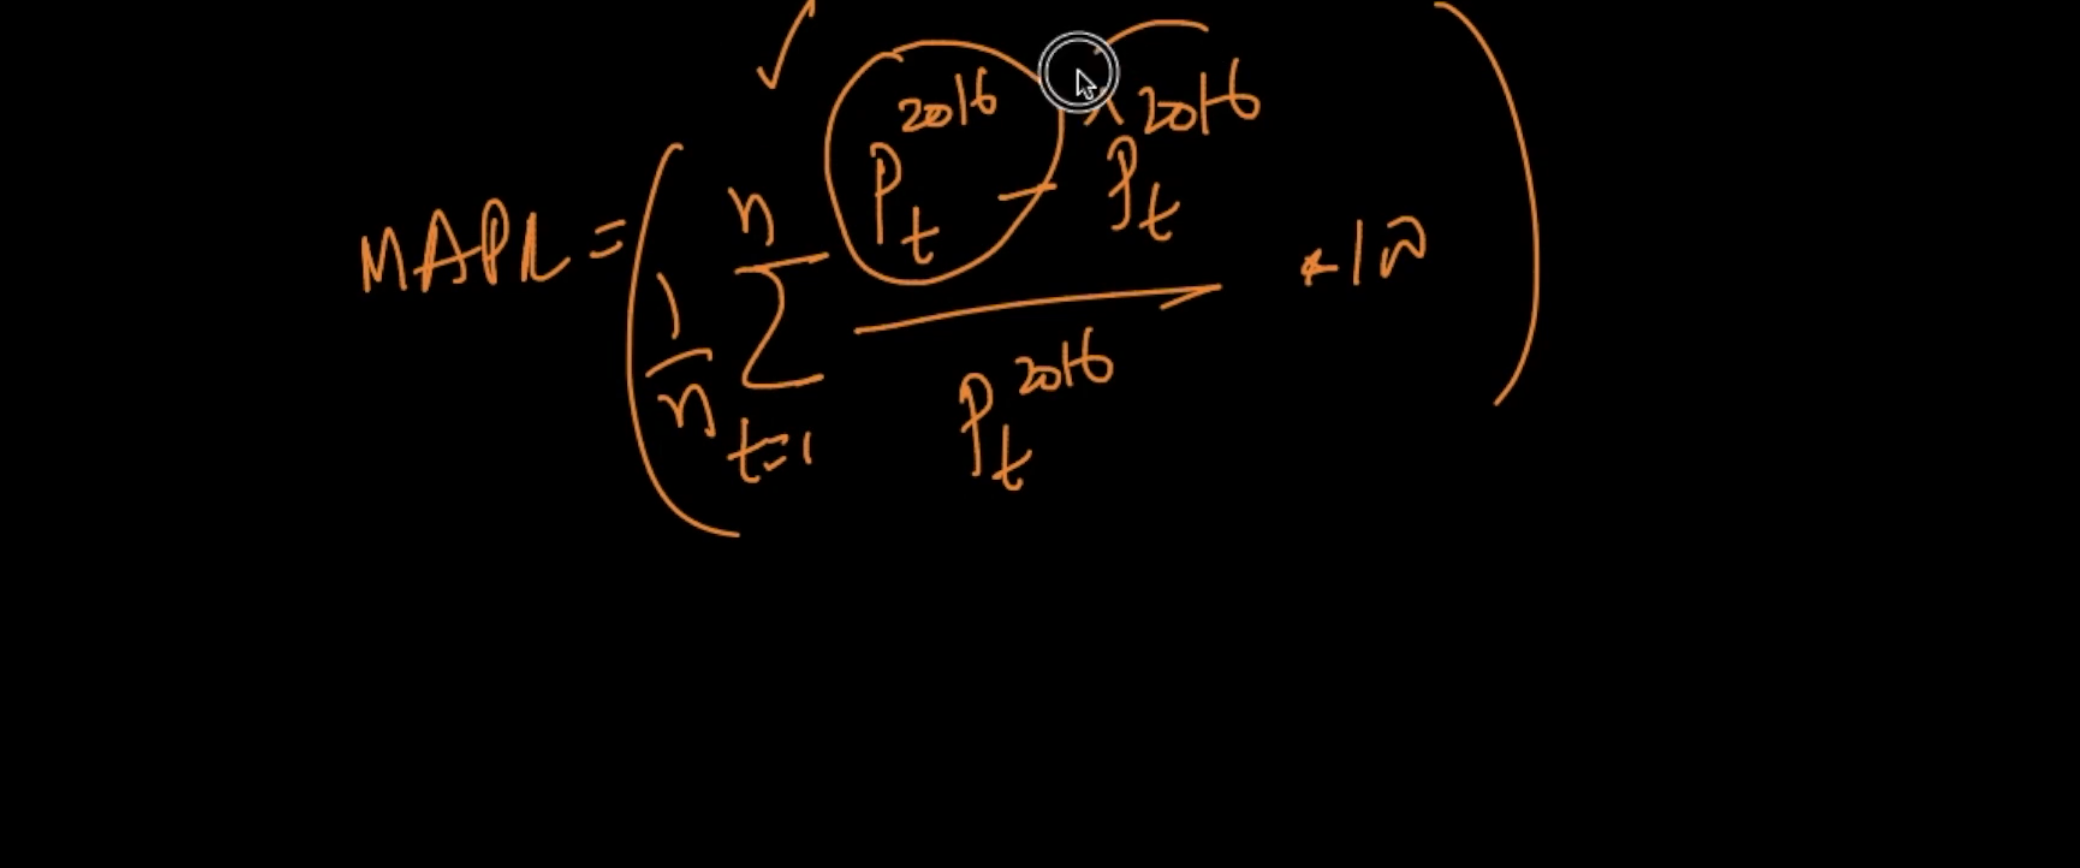 MAPE = ( 1/n n Σ t=1 P_t^2016 - P̂_t^2016 / P_t^2016 * 100 )